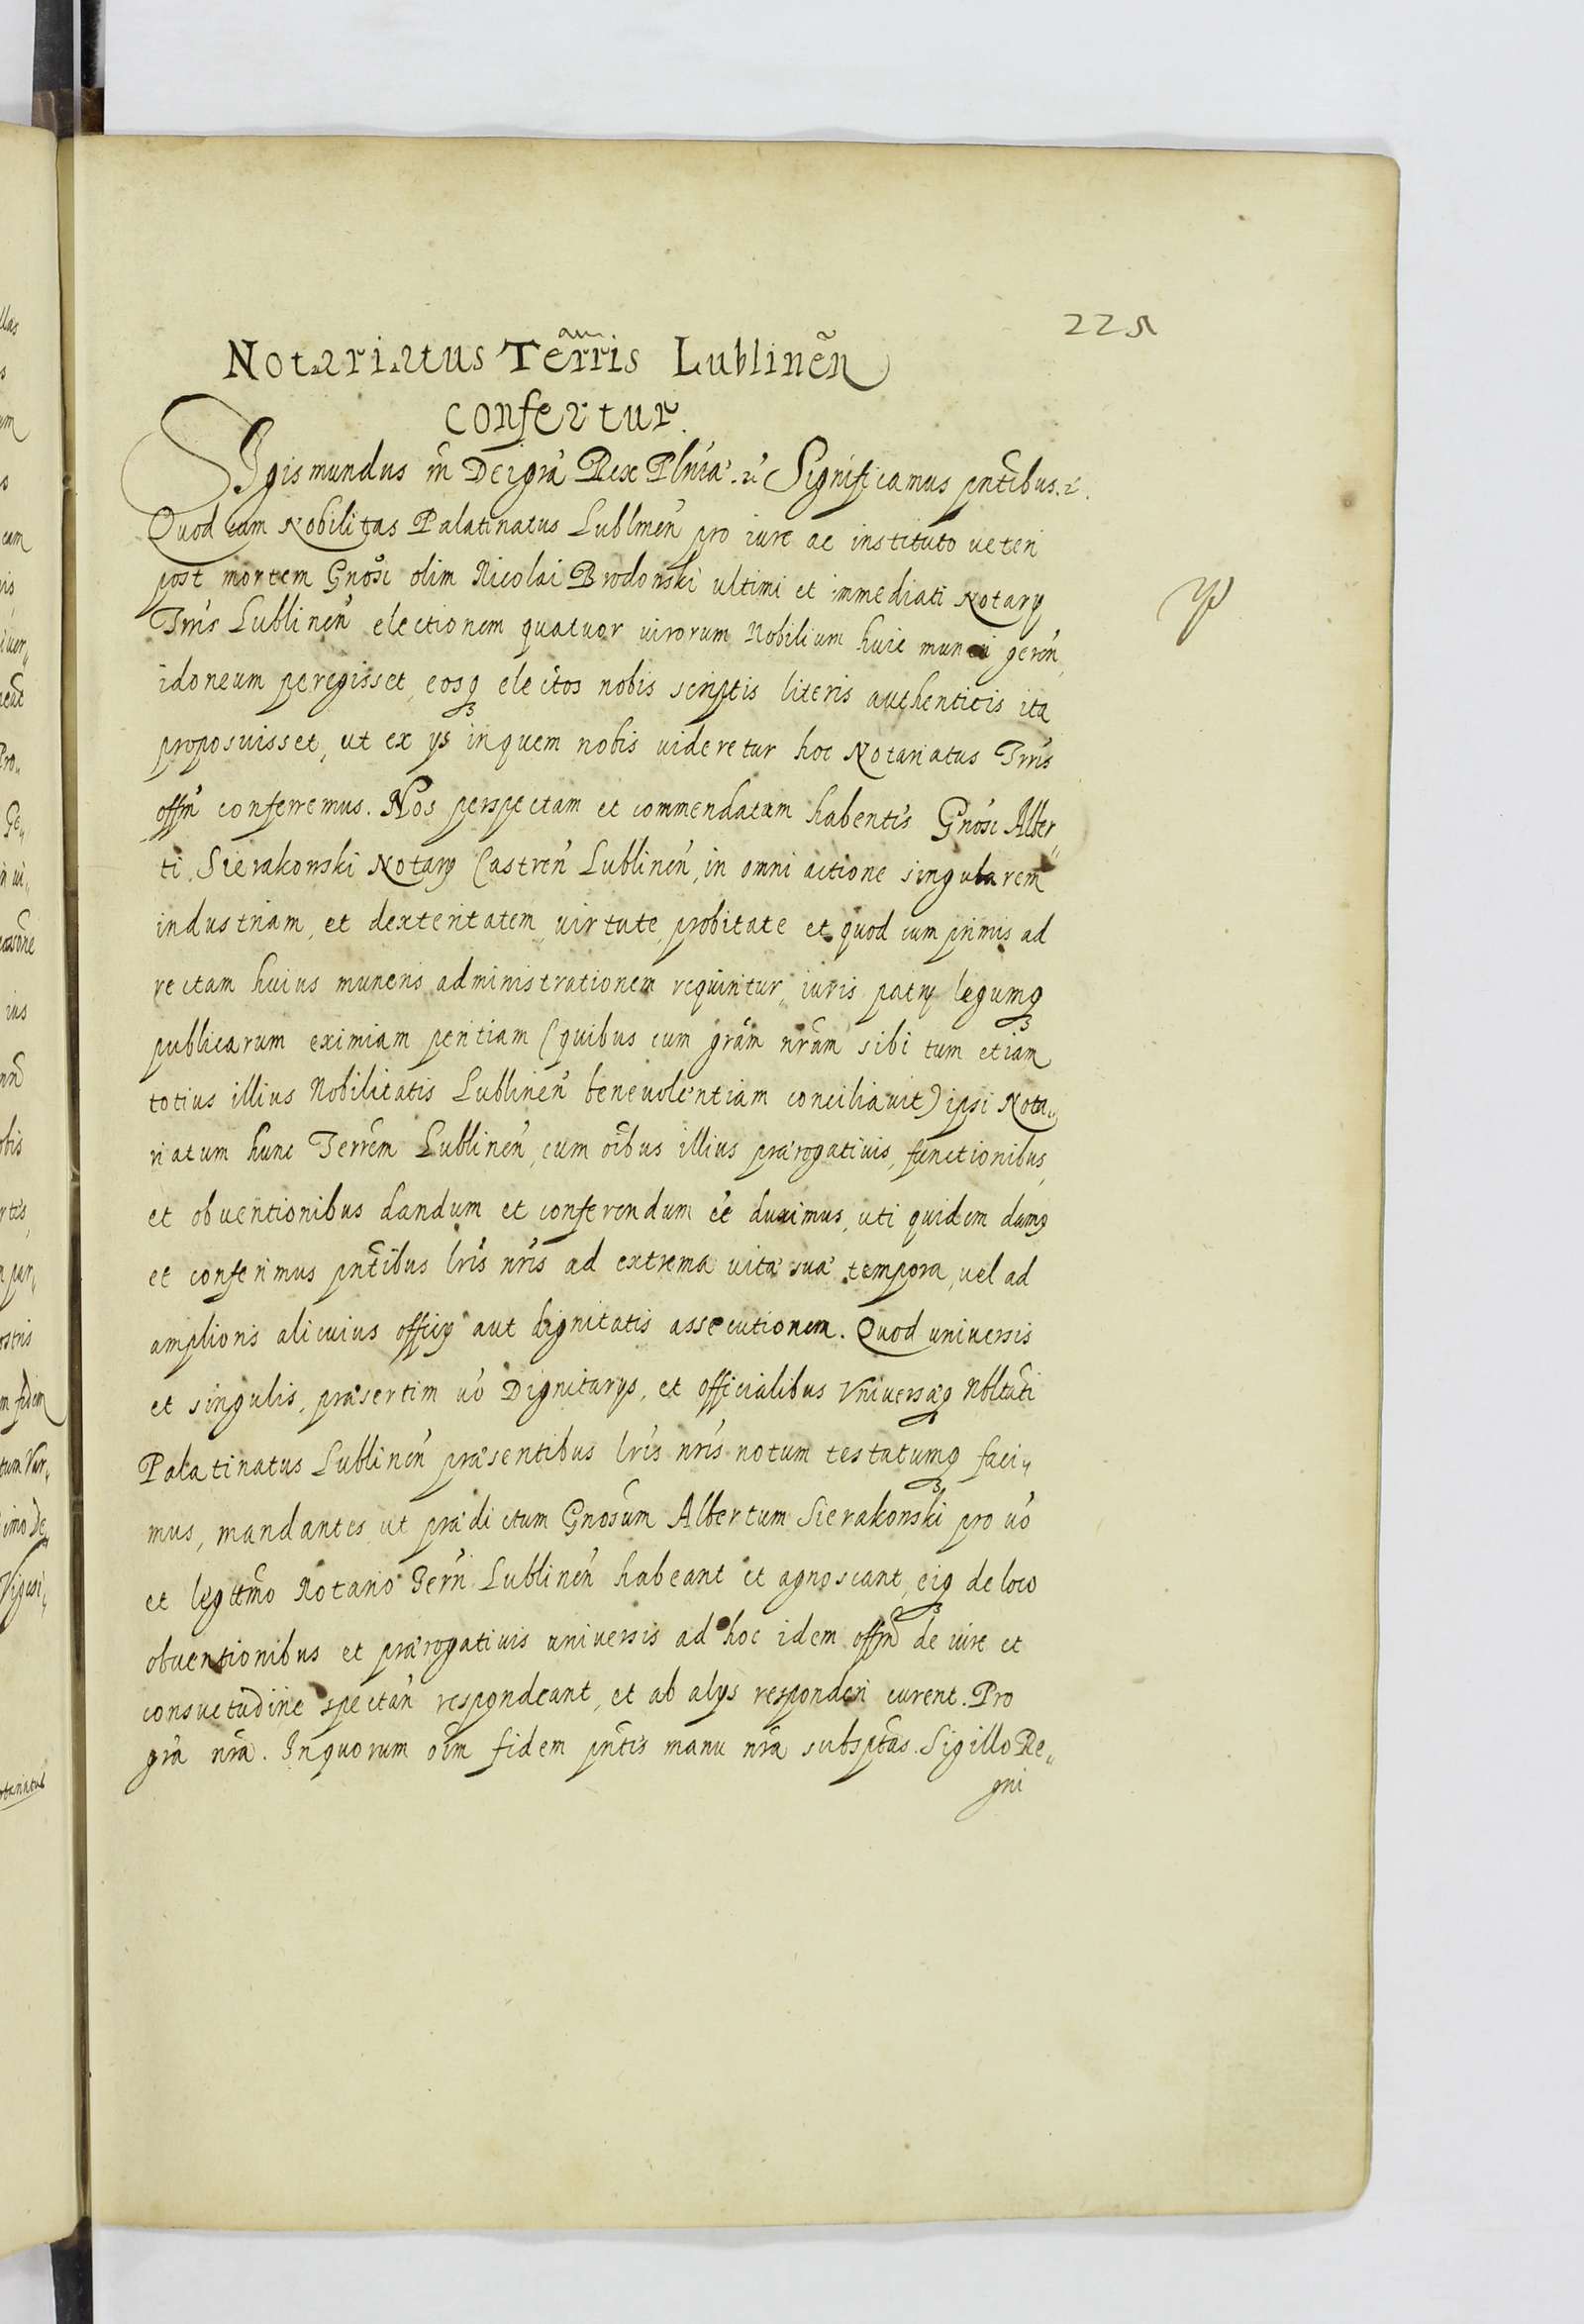 225
Notariatus Terris Lublinen̄
confertur.
Sigismundus III Dei gra Rex Plniæ. &c Significamus pntibus. &c.
Quod cum Nobilitas Palatinatus Lublinen pro iure ac instituto ueteri
post mortem Gnosi olim Nicolai Brodowski ultimi et immediati Notary
Trris Lublinen electionem quatuor uirorum Nobilium huic muneri geren
idoneum peregisset, eosq3 electos nobis scriptis literis authenticis ita
proposuisset, ut ex ys in quem nobis uideretur hoc Notariatus Trris
offm conferremus. Nos perspectam et commendatam habentes Gnosi Alber„
ti Sierakowski Notary Castren Lublinen, in omni actione singularem
industriam, et dexteritatem, uirtute, probitate et quod cum primis ad
rectam huius muneris administrationem requiritur, iuris patry legumq3
publicarum eximiam peritiam (quibus cum gram nram sibi tum etiam
totius illius Nobilitatis Lublinen beneuolentiam conciliauit) ipsi Nota„
riatum hunc Terrem Lublinen, cum oibus illius prærogatiuis, functionibus,
et obuentionibus dandum et conferendum ee duximus, uti quidem damq
et conferimus pntibus lris nris ad extrema uitæ suæ tempora, uel ad
amplioris alicuius officy aut dignitatis assecutionem. Quod uniuersis
et singulis, præsertim uo Dignitarys, et officialibus Vniuersæq3 Nbltati
Palatinatus Lublinen præsentibus lris nris notum testatumq3 faci„
mus, mandantes, ut prædictum Gnosum Albertum Sierakowski pro uo
et legttmo Notario Terrn Lublinen habeant et agnoscant, eiq3 de loco
obuentionibus et prærogatiuis uniuersis ad hoc idem offm de iure et
consuetudine spectan respondeant, et ab alys responderi curent. Pro
gra nra. In quorum oim fidem pntes manu nra subsptas. Sigillo Re„
gni